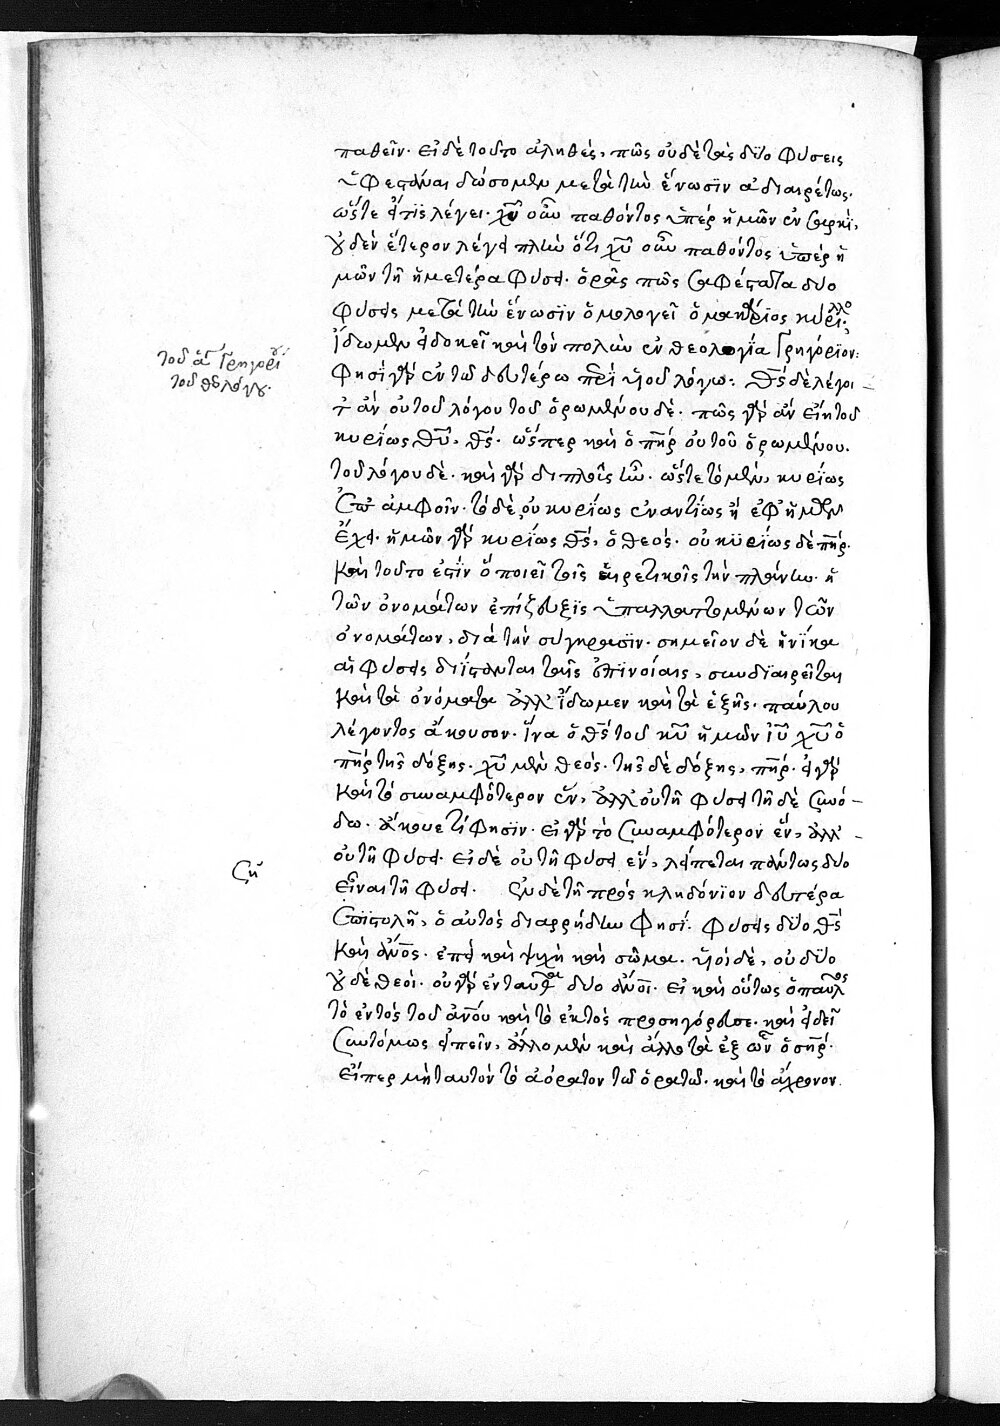 παθεῖν· εἰ δὲ τοῦτο ἀληθές, πῶς οὐδὲ τὰς δύο φύσεις
ὑφεστάναι δώσομεν μετὰ τὴν ἕνωσϊν ἀδιαιρέτως·
ὥστε εἴ τις λέγει· χῦ οὖν παθόντος ὑπὲρ ἡμῶν ἐν σαρκὶ,
οὐδὲν ἕτερον λέγει πλὴν ὅτι χῦ οὖν παθόντος ὑπὲρ ἡ
μῶν τῆ ἡμετέρα φύσει· ὁρᾶς πῶς σαφέστατα δύο
φύσεις μετὰ τὴν ἕνωσϊν ὁμολογεῖ ὁ μακάριος κύριλλο·
ἴδωμεν εἰ δοκεῖ καὶ τὸν πολὺν ἐν θεολογία Γρηγόριον:
τοῦ ἁγ Γρηγορίου
τοῦ θεολόγου·
φησὶ γὰρ ἐν τῶ δευτέρω περὶ υἱοῦ λόγω: θς δὲ λέγοι
τ ἂν οὐ τοῦ λόγου τοῦ ὁρωμένου δέ· πῶς γὰρ ἂν εἴη τοῦ
κυρίως θῦ, θς· ὥσπερ καὶ ὁ πηρ οὐ τοῦ ὁρωμένου·
τοῦ λόγου δέ· καὶ γὰρ διπλοῦς ἦν· ὥστε τὸ μὲν, κυρίως
ἐπ' ἀμφοῖν· τὸ δὲ οὐ κυρίως ἐναντίως ἢ ἐφ' ἡμῶν
ἔχει· ἡμῶν γὰρ κυρίως θς, ὁ θεός· οὐ κυρίως δὲ πηρ·
καὶ τοῦτο ἐστὶν ὃ ποιεῖ τοῖς αἱρετικοῖς τὴν πλάνην· ἡ
τῶν ὀνομάτων ἐπίζευξϊς ὑπαλλαττομένων τῶν
ὀνομάτων, διὰ τὴν σύγκρασϊν· σημεῖον δὲ ἡνίκα
αἱ φύσεις διΐστανται ταῖς ἐπινοίαις, συνδϊαιρεῖται
καὶ τὰ ὀνόματα ἀλλ' ἴδωμεν καὶ τὰ ἑξῆς· παύλου
λέγοντος ἄκουσον· ἵνα ὁ θς τοῦ κῦ ἡμῶν ἰῦ χῦ ὁ
πηρ τῆς δόξης· χῦ μὲν θεός· τῆς δὲ δόξης, πηρ· εἰ γὰρ
καὶ τὸ συναμφότερον ἓν, ἀλλ' οὐ τῆ φύσει τῆ δὲ συνό-
δω· ἄκουε τί φησϊν· εἰ γὰρ τὸ συναμφότερον ἓν, ἀλλ'
οὐ τῆ φύσει· εἰ δὲ οὐ τῆ φύσει ἓν, λείπεται πάντως δύο
ση
εἶναι τῆ φύσει· ἐν δὲ τῆ πρὸς κληδόνϊον δευτέρα
ἐπιστολῆ, ὁ αὐτὸς διαρρήδην φησί· φύσεις δύο θς
καὶ ἄνος· ἐπεὶ καὶ ψυχὴ καὶ σῶμα· υἱοὶ δὲ, οὐ δύο
οὐδὲ θεοί· οὐ γὰρ ἐνταῦθα δύο ἄνοι· εἰ καὶ οὕτως ὁ παῦλος
τὸ ἐντὸς τοῦ ἀνου καὶ τὸ ἐκτὸς προσηγόρευσε· καὶ εἰ δεῖ
συντόμως εἰπεῖν, ἄλλο μὲν καὶ ἄλλο τὰ ἐξ ὧν ὁ σηρ·
εἴπερ μὴ ταυτὸν τὸ ἀόρατον τῶ ὁρατῶ· καὶ τὸ ἄχρονον